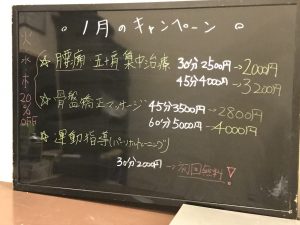 。1月のキャンペーン。
火水木20%OFF
☆腰痛 五十肩 集中治療 30分2500円→2000円
45分4000円→3200円
☆骨盤矯正マッサージ 45分3500円→2800円
60分5000円→4000円
☆運動指導(パーソナルトレーニング)
30分2000円→初回無料!